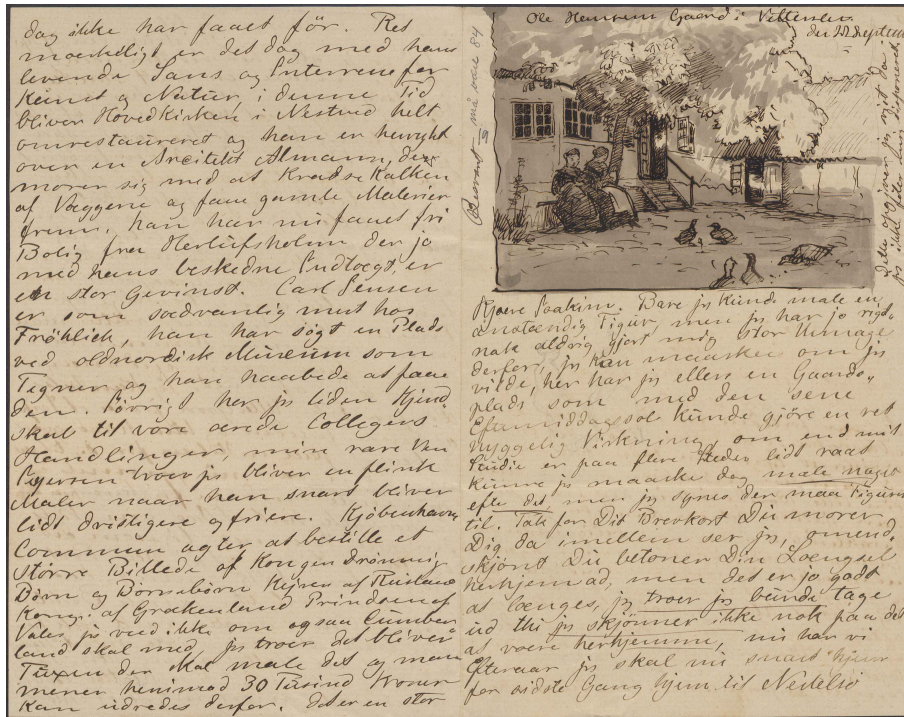 dag ikke har faaet för. Res
mærkeligt er det dog med hans
levende Sans og Interesse for
Kunst og Natur, i denne Tid
bliver Hovedkirken i Nestved helt
omrestaureret og han er henrykt
over en Arcitekt Almann, der
morer sig med at Kradse Kalken
af Væggene og faae gamle Malerier
frem, han har nu faaet fri
Bolig fra Herlufsholm der jo
med hans beskedne Indtægt, er
en stor Gevinst. Carl Jensen
er som sædvanlig mut hos
Fröhlich, han har sögt en Plads
ved oldnordisk Museum som
Tegner og han haabede at faae
den. Iövrigt har jeg liden Kjend-
skab til vore ærede Collegers
Handlinger, min rare Ven
troer jeg bliver en flink
Maler naar han snart bliver
lidt dristigere og friere. Kjöbenhavns
Commun agter at bestille et
större Billede af Kongen Dronning
Börn og Börnebörn Kejser af Rusland
Kong. af Grækenland Prindsen af
Vales, jeg ved ikke om ogsaa Cumber-
land skal med, jeg troer det bliver
Tuxen der skal male det og man
mener henimod 30 Tusind Kroner
kan udredes derfor. det er en stor
Ole Hansens Gaard i Vetterslev
den 22 Septem
Besvart 84
Kjære Joakim. Bare jeg kunde male en
anstændig Figur, men jeg har jo rigt.
nok aldrig gjort mig stor Umage
derfor, jeg kan maaskee om jeg
vilde, her har jeg ellers en Gaards-
plads som med den sene
Eftermiddagssol kunde gjöre en ret
hyggelig Virkning, om end mit
Studie er paa flere Steder lidt raat
kunne jeg maaske dog male noget
efter det men jeg synes der maa Figurer
til. Tak for Dit Brevkort Du morer
Dig da imellem ser jeg, omend-
skjönt Du betoner Din Længsel
herhjemad, men det er jo godt
at længes, jeg troer jeg burde tage
ud thi jeg skjönner ikke nok paa det
at være herhjemme, nu har vi
Efteraar jeg skal nu snart hjem
for sidste Gang hjem til Nestelsö